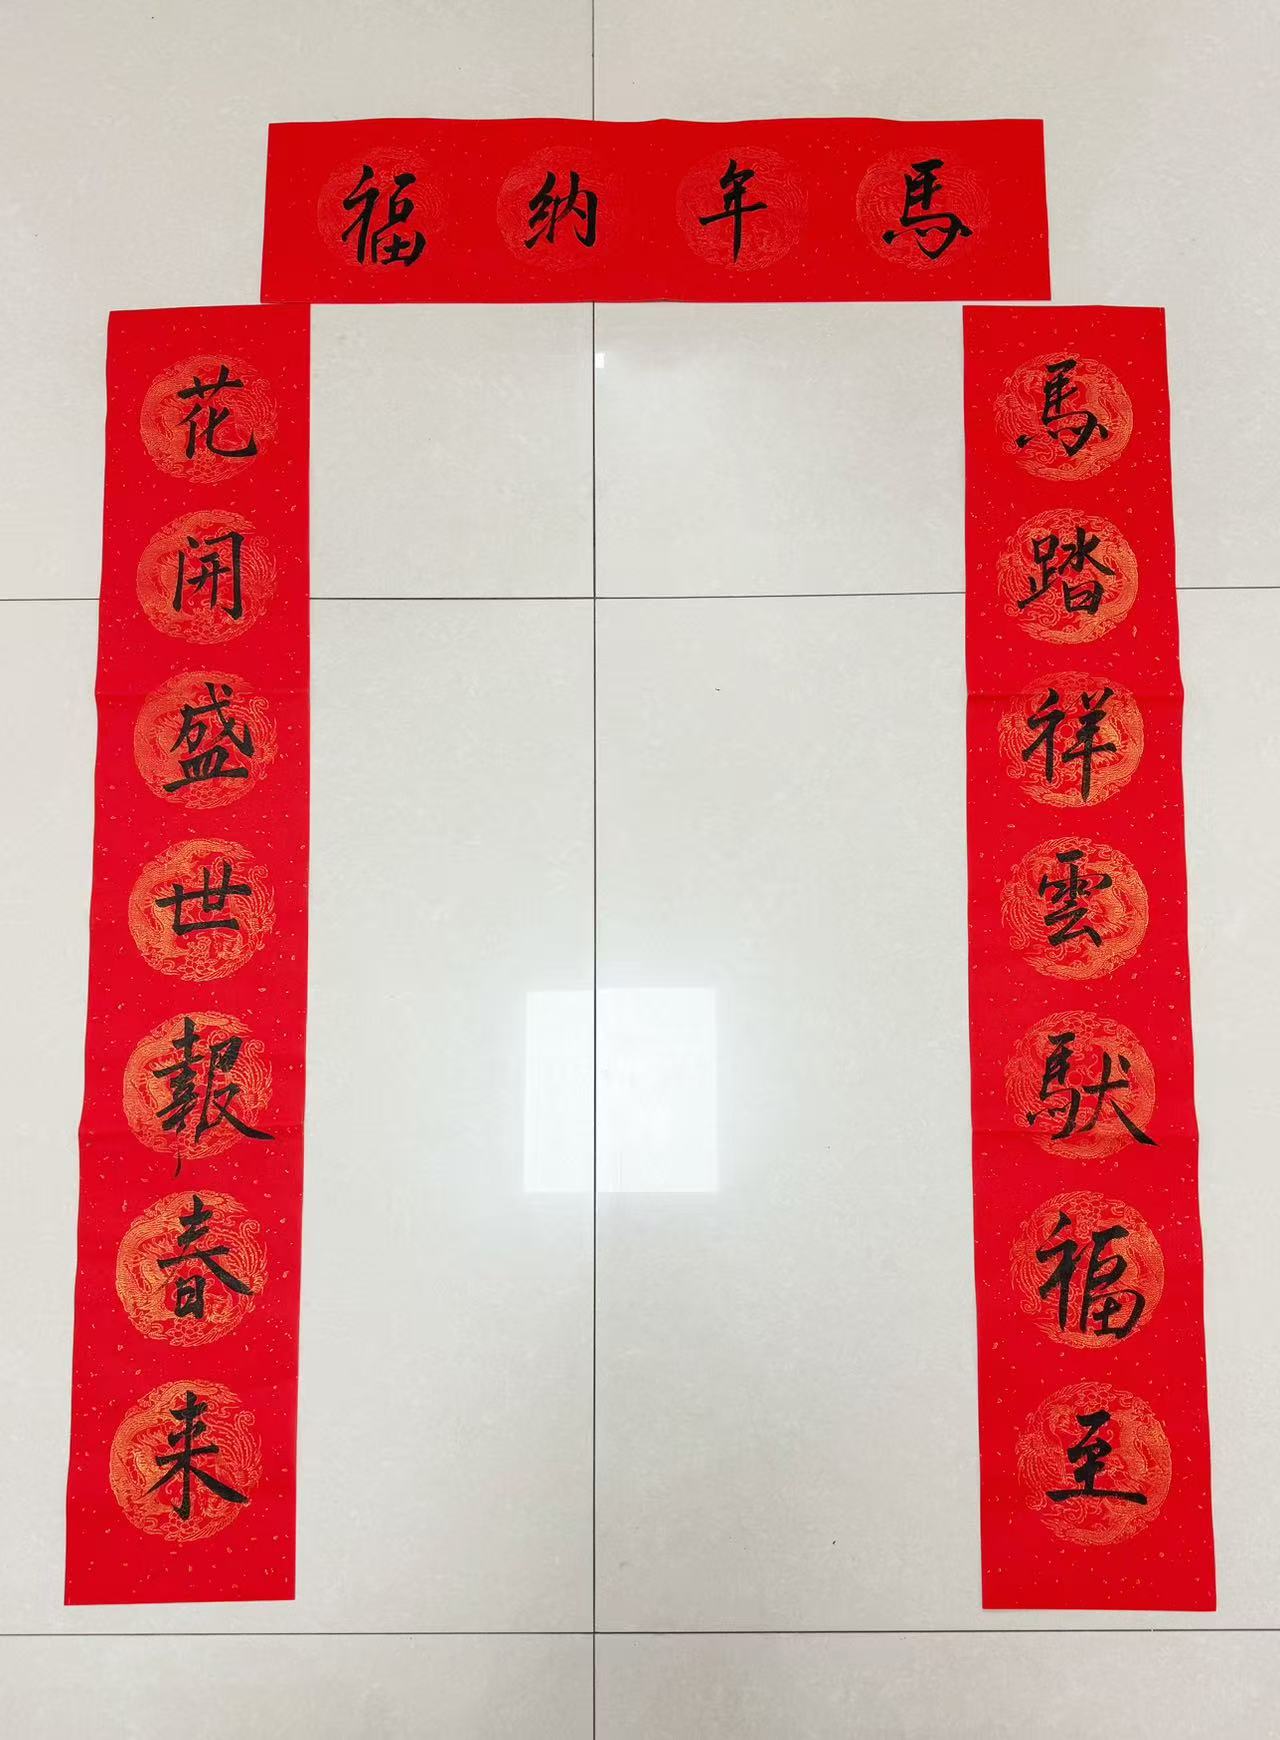 馬年纳福
馬踏祥雲馱福至
花開盛世報春来